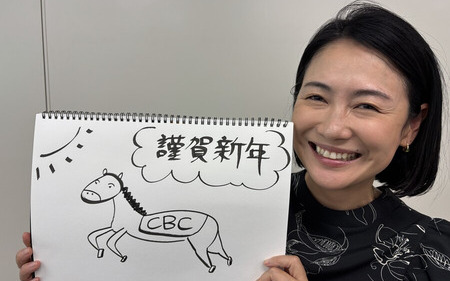 謹賀新年
CBC